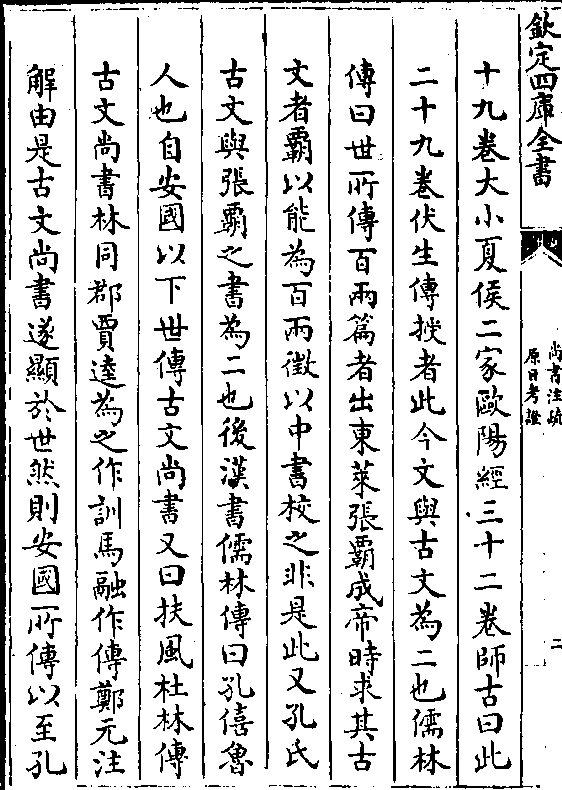 欽定四庫全書
尚書注疏
原目考證
二
十九卷大小夏侯二家歐陽經三十二卷師古曰此
二十九卷伏生傳授者此今文與古文為二也儒林
傳曰世所傳百兩篇者出東萊張霸成帝時求其古
文者霸以能為百兩徵以中書校之非是此又孔氏
古文與張霸之書為二也後漢書儒林傳曰孔僖魯
人也自安國以下世傳古文尚書又曰扶風杜林傳
古文尚書林同郡賈逵為之作訓馬融作傳鄭元注
解由是古文尚書遂顯於世然則安國所傳以至孔